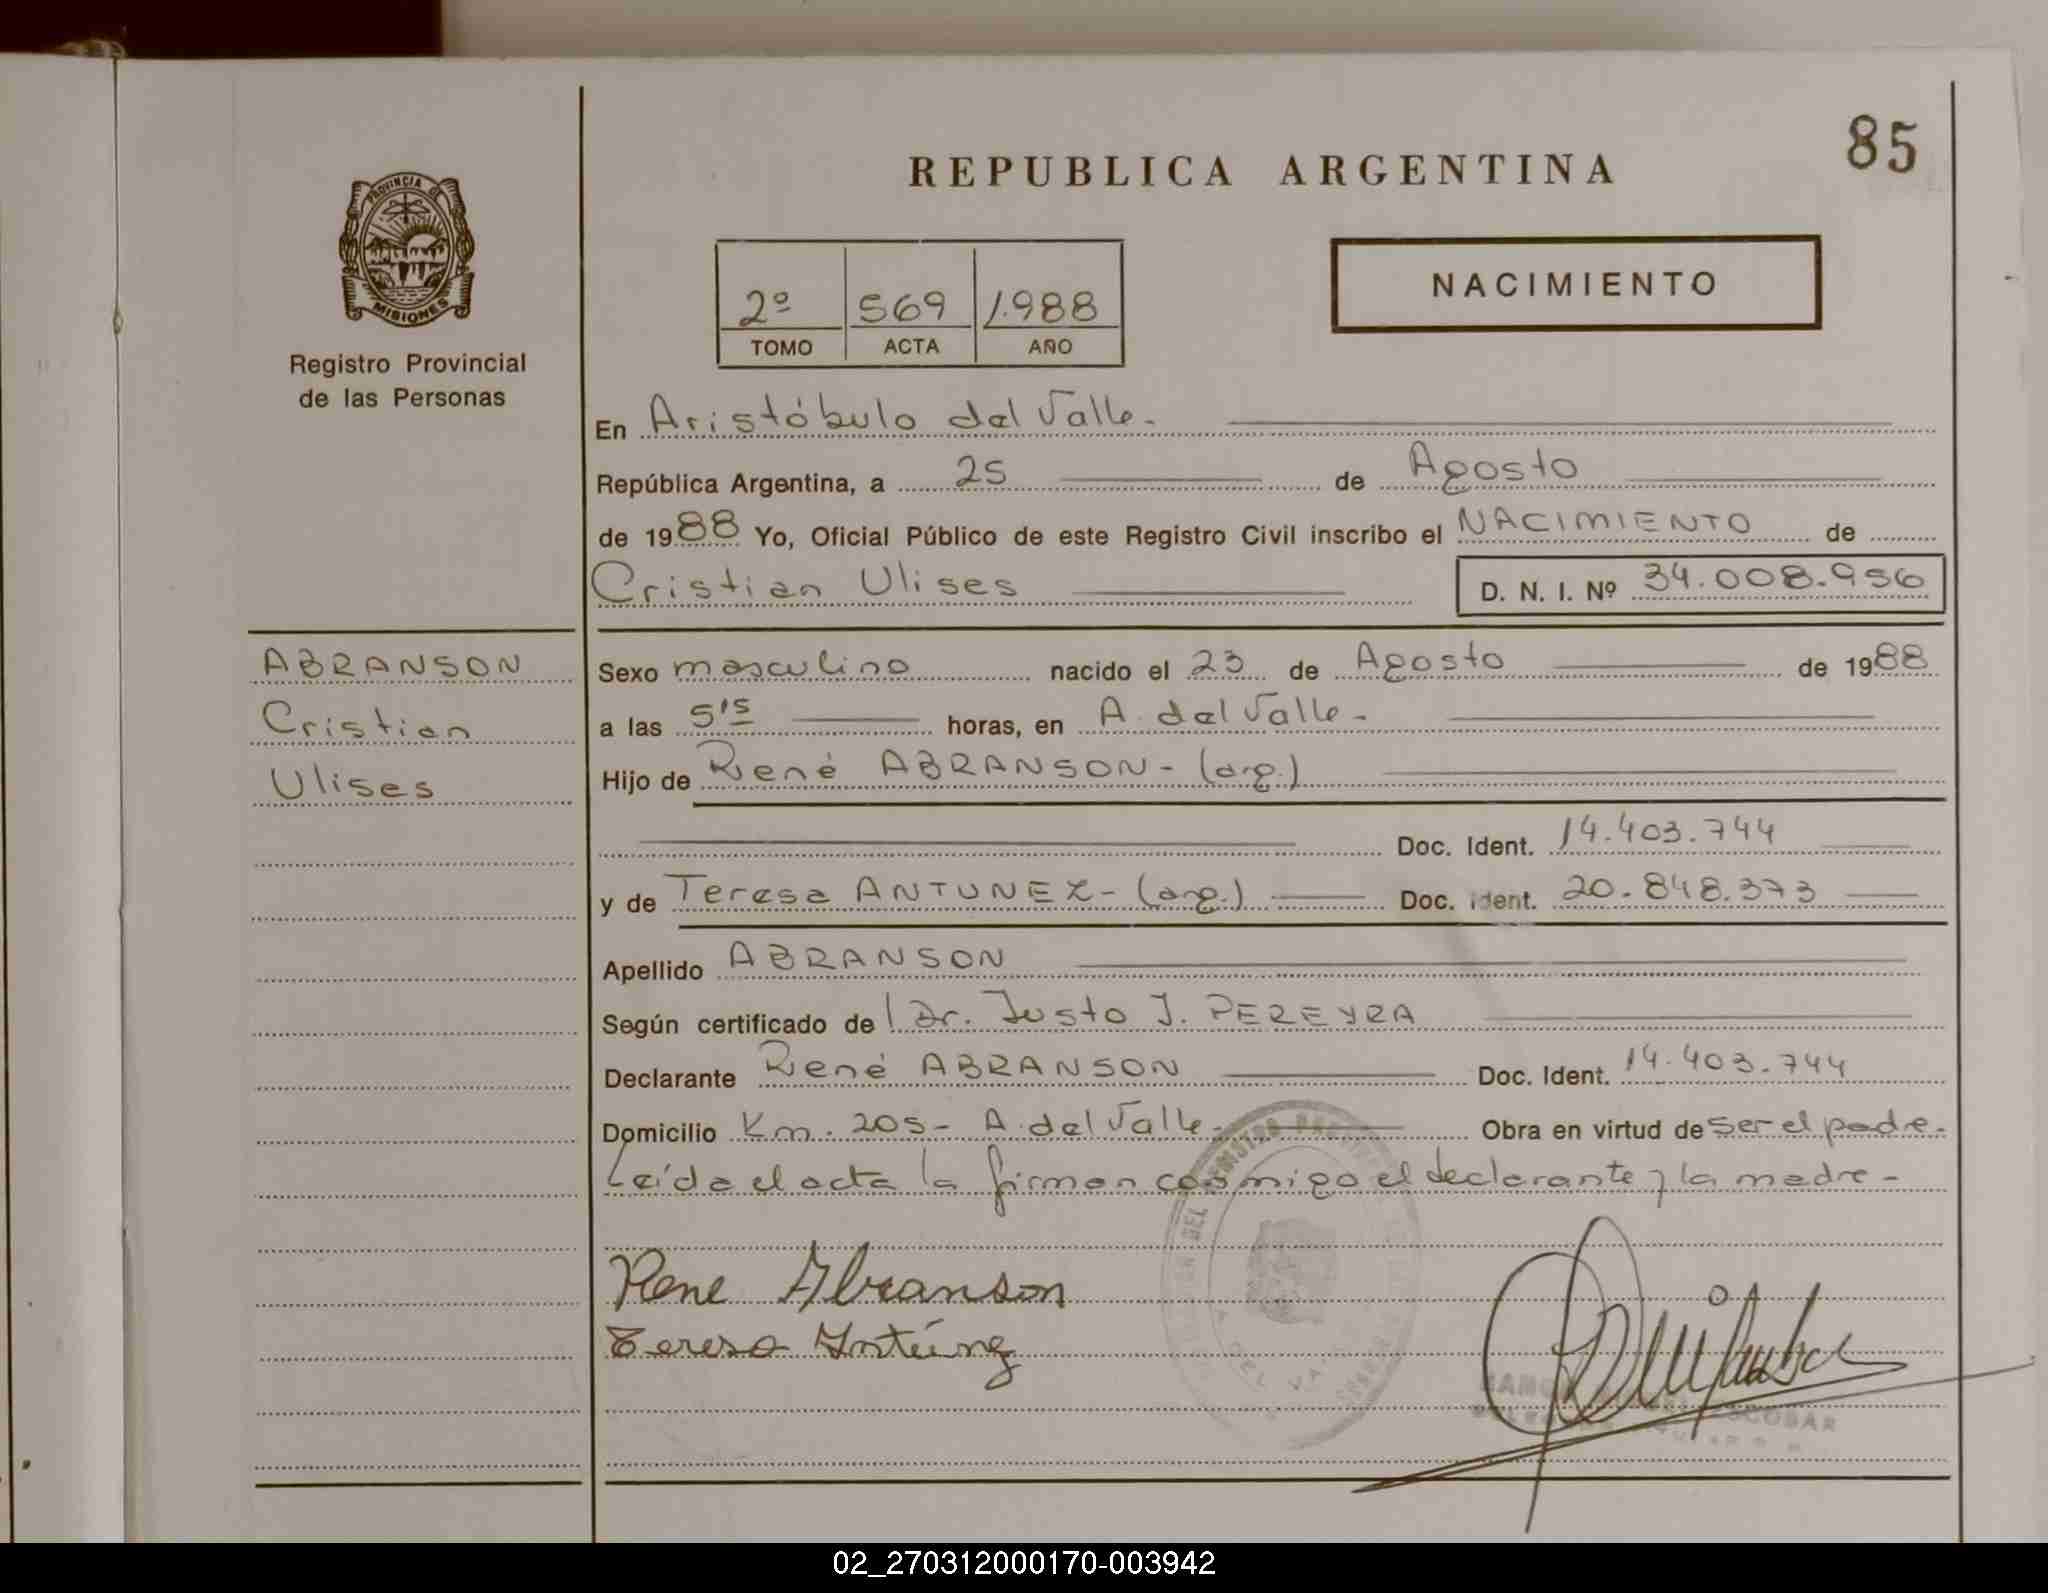 85
PROVINCIA DE
MISIONES
Registro Provincial
de las Personas
REPUBLICA ARGENTINA
NACIMIENTO
2º 569 1.988
TOMO ACTA AÑO
En Aristóbulo del Valle.
República Argentina, a 25 de Agosto
de 1988 Yo, Oficial Público de este Registro Civil inscribo el NACIMIENTO de
Cristian Ulises D. N. I. Nº 34.008.956
ABRANSON
Cristian
Ulises
Sexo masculino nacido el 23 de Agosto de 1988
a las 5'15 horas, en A. del Valle.
Hijo de René ABRANSON - (arg.)
Doc. Ident. 14.403.744
y de Teresa ANTUNEZ - (arg.) Doc. Ident. 20.848.373
Apellido ABRANSON
Según certificado del Dr. Justo J. PEREYRA
Declarante René ABRANSON Doc. Ident. 14.403.744
Domicilio Km. 205 - A. del Valle. Obra en virtud de ser el padre.
Leída el acta la firman conmigo el declarante y la madre -
Rene Abranson
Teresa Antúnez
ESCOBAR
02_270312000170-003942